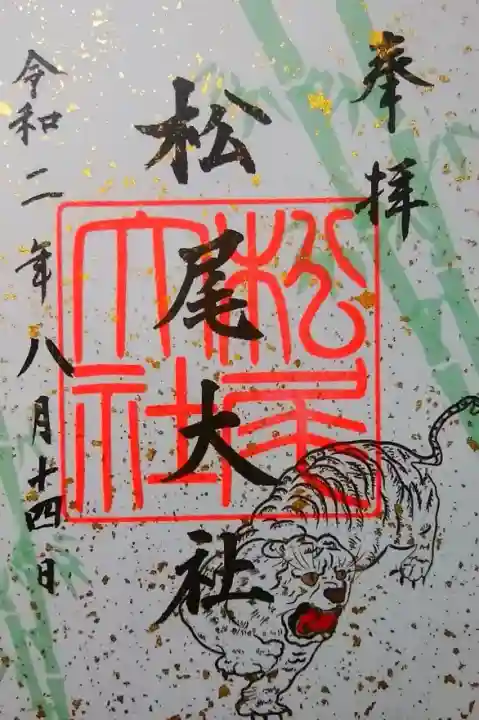 奉拝
松尾大社
松尾大社
令和二年八月十四日